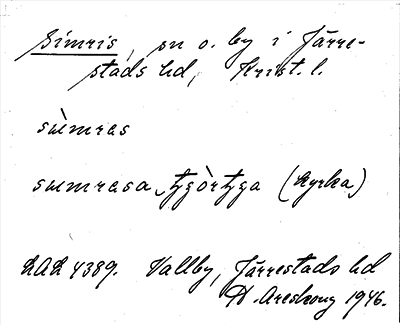 Simris, sn o. by i Järre-
stads hd, Krist. l.
sùmras
sumrasa tzgòrtzga (kyrka)
LAL 4389. Vallby, Järrestads hd
H. Areskoug 1946.